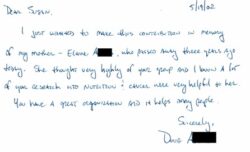 Dear Susan, 5/19/02
I just wanted to make this contribution in memory
of my mother - Elaine A, who passed away three years ago
today. She thought very highly of your group and I know a lot
of your research into nutrition & cancer were very helpful to her.
You have a great organization and it helps many people.
Sincerely,
David A